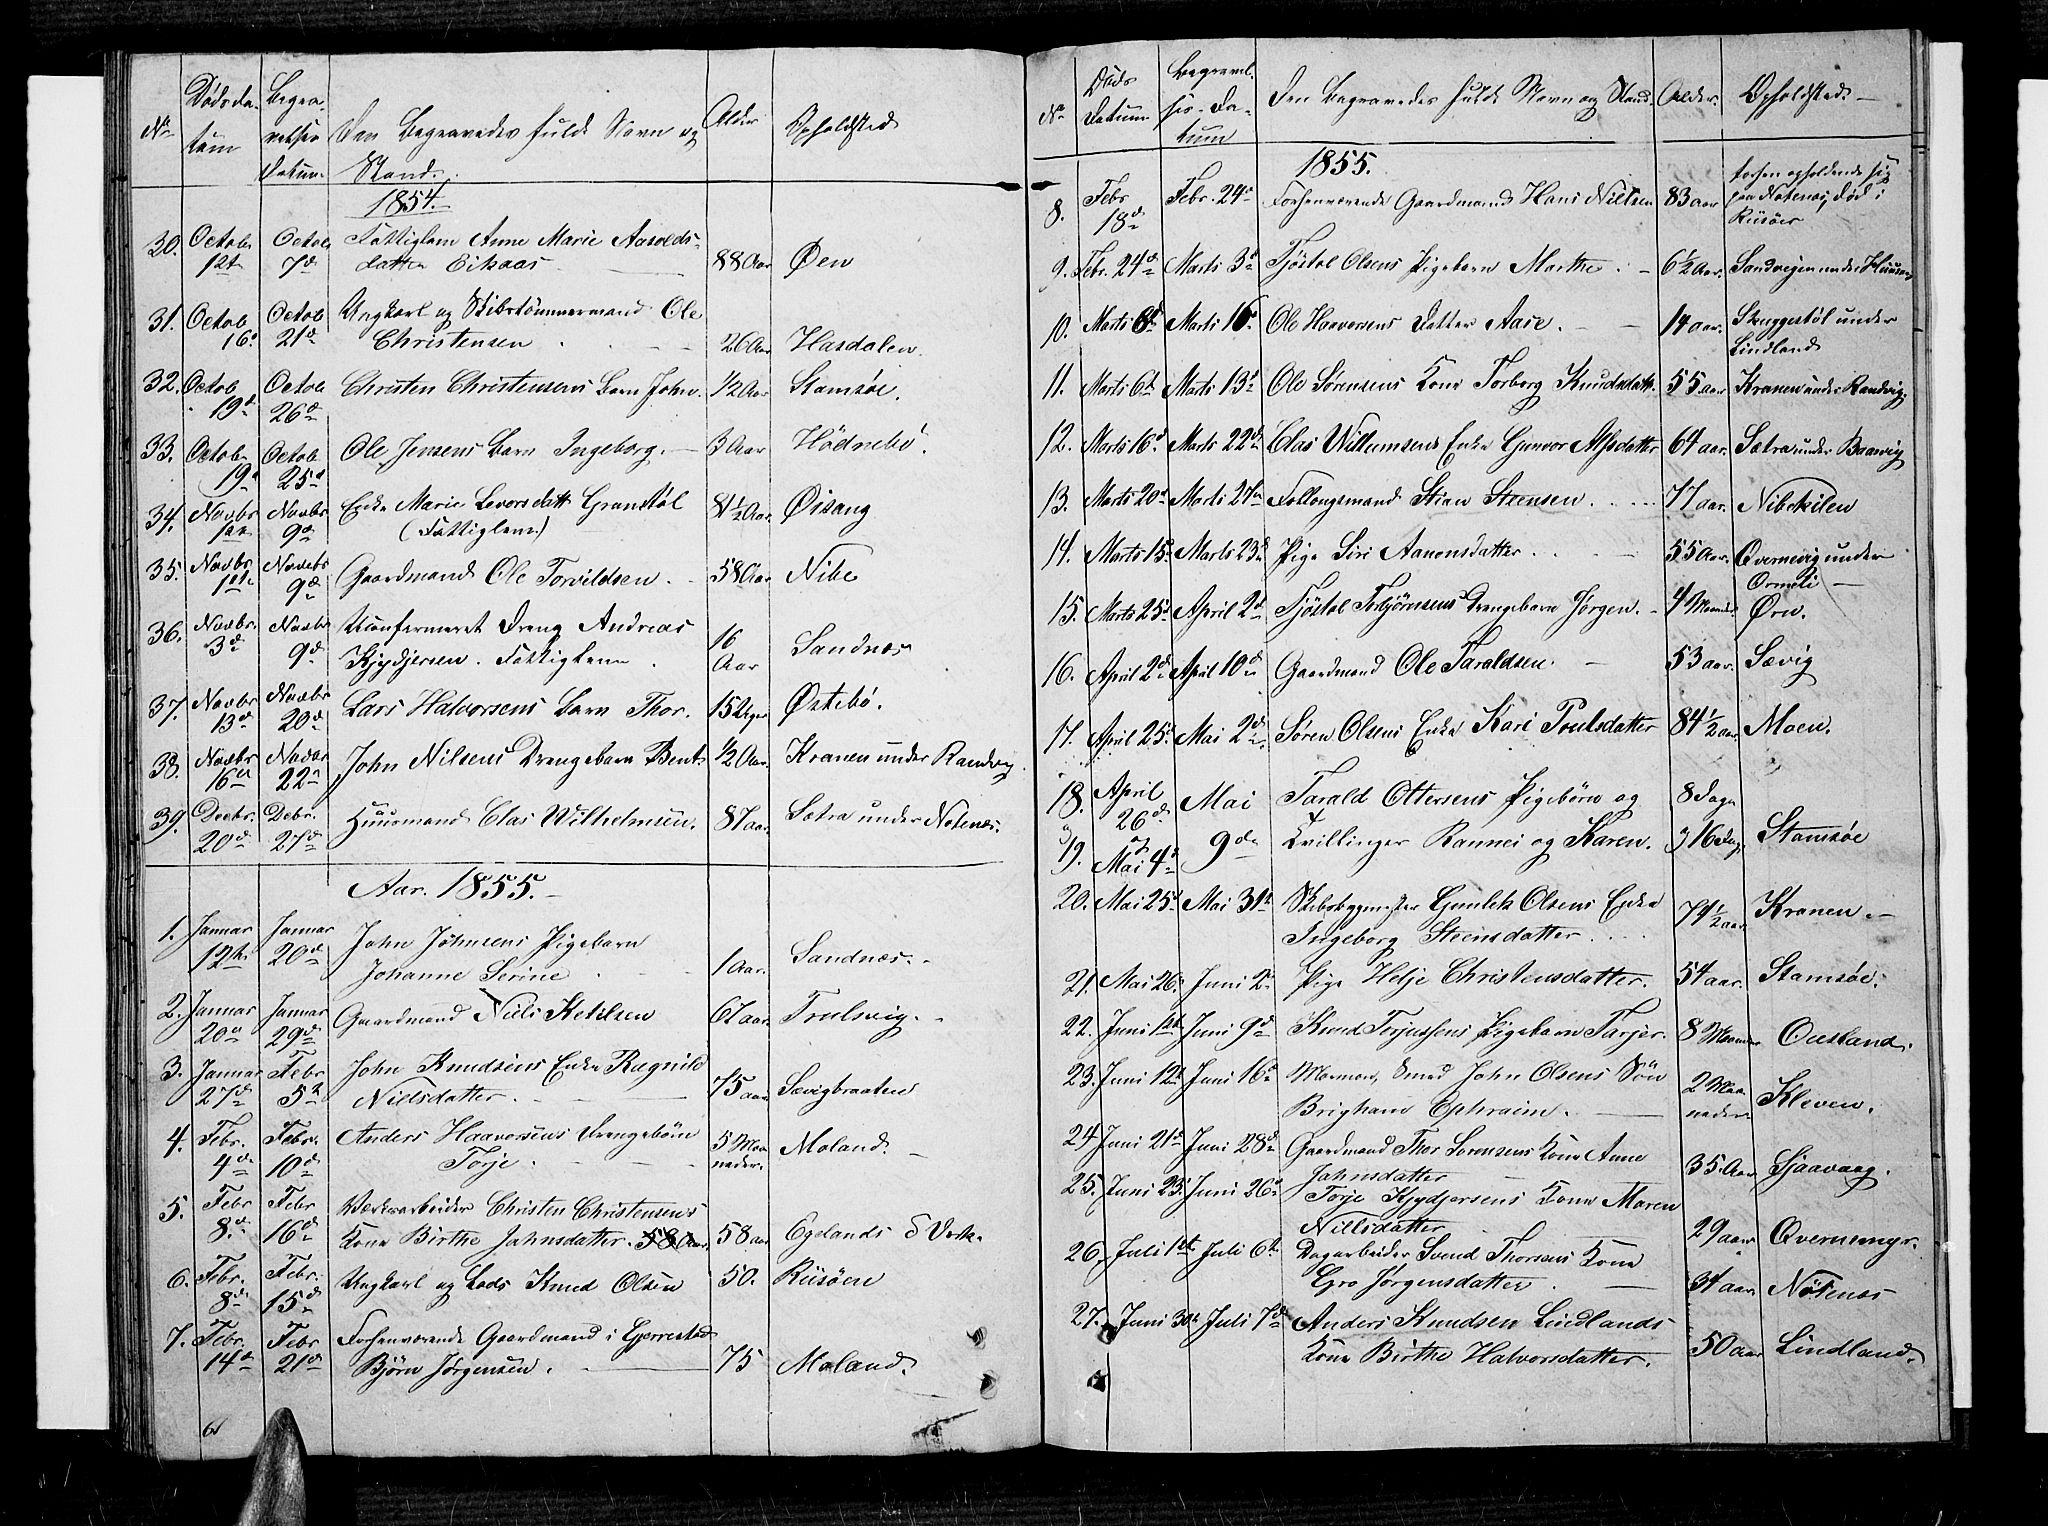 No
Dødsda-
tum
Begra-
velses
Datum
Den Begravedes fulde Navn og
Stand.
Alder
Opholdsted
1854.
30. Octobr 12t Octob 7d Fattiglem Anne Marie Aasolds-
datter Eikaas 88 Aar Øen
31. Octob 16d Octob 21d Ungkarl og Skibstømmermand Ole
Christensen 26 Aar Hasdalen
32. Octob 19d Octob 26d Christen Christensens Barn John. 1/2 Aar Stamsøe.
33. Octob 19d Octob 25d Ole Jensens Barn Ingeborg. 3 Aar Hødnebø.
34. Novbr Novbr 9d Enke Marie Levorsdatt Granstøl
(Fattiglem) 81 1/2 Aar Øisang
35. Novbr 1ste Novbr 9d Gaardmand Ole Torvildsen. 58 Aar Nibe
36. Novbr. 3d Novbr 9d Ukonfermeret Dreng Andreas
Kjydjersen. Fattiglem. 16 Aar Sandnæs
37. Novbr 13d Novbr 20d Lars Halvorsens Barn Thor. 15 Uger Østebø.
38. Novbr 16d Novbr 22d John Nilsens Drengebarn Bent 1/2 Aar. Kranen under Randvig.
39. Decbr. 20d Debr. 27d Huusmand Clas Wilhelmsen. 87 aar Sætra under Notenes.
Aar. 1855.
1. Januar 12te Januar 20d John Johnsens Pigebarn
Johanne Serine 1 Aar. Sandnæs.
2. Januar 20d Januar 29d Gaardmand Niels Ketilsen 67 aar Trulsvig.
3. Januar 27d Febr 5te John Knudsens Enke Ragnild
Nielsdatter. 75 aar Sævigbraaten
4. Febr. 4d Febr. 10d Anders Haavorsens Drengebørn
Torje. 5 Maaneder. Moland.
5. Febr 8d Febr 16d Værksarbeider Christen Christensens
Kone Birthe Jahnsdatter. 58 Aar. 58 aar Egelands Værk.
6. Febr. 8d Febr. 15d Ungkarl og Lods Knud Olsen 50. Riisøen
7. Febr. 14d Febr 21d Forhenværende Gaardmand i Gjerrestad
Bjørn Jørgensen. 75 Moland.
No
Døds
Datum
Begravel-
ses-Da-
tum
Den Begravedes fulde Navn og Stand
Alder.
Opholdsted.
1855.
8. Febr 18d Febr. 24d Forhenværende Gaardmand Hans Nielsen 83 aar forhen opholdende sig
paa Notenæs, død i
Riisøer
9. Febr. 24d Marts 3d Tjøstol Olsens Pigebarn Marthe. 6 1/2 Aar. Sandvigen under
10. Marts 6d Marts 16d Ole Haavorsens Datter Aase. 14 aar. Skuggestøl under
Lindland
11. Marts 6d Marts 13d Ole Sørensens Kone Torborg Knudsdatt. 55 aar Kranen under Randvig.
12. Marts 16d Marts 22d Clas Willumsens Enke Gunvor Alfsdatter 64 aar. Sætra under Barvig
13. Marts 20d Marts 27d Follougsmand Stian Steensen. 77 aar. Nibekilen
14. Marts 15d Marts 23d Pige Siri Aanonsdatter. 55 Aar. Qvernevig under
Ormeli
15. Marts 25d April 2d Tjøstol Torbjørnsens Drengebarn Jørgen. 4 Maaneder Øen.
16. April 2d April 10d Gaardmand Ole Taraldsen. 53 aar. Sævig
17. April 25d Mai 2d Søren Olsens Enke Kari Poulsdatter 84 1/2 aar. Moen.
18. April 26d Mai Tarald Ottersens Pigebørn og 8 Dage
og 19. og Mai 4d 9de Tvillinger Rannei og Karen. og 16 Dage Stamsøe
20. Mai 25d Mai 31te Skibsbygmester Gunlek Olsens Enke
Ingeborg Steensdatter. 79 1/2 aar Kranen.
21. Mai 26d Juni 2d Pige Helje Christensdatter. 54 aar. Stamsøe.
22. Juni 1ste Juni 9d Knud Terjussens Pigebarn Tarjer. 8 Maaneder Oiesland.
23. Juni 12te Juni 16d Mormon, Smed John Olsens Søn
Brigham Ephraim. 2 Maaneder Kleven.
24 Juni 21d Juni 28d Gaardmand Thor Sørensens Kone Anne
Jahnsdatter 35. Aar Sjaavaag.
25. Juni 23. Juni 26d Torje Kjydjersens Kone Maren
Nillsdatter 29 aar Qvernemyr.
26. Juli 1ste Juli 6te Dagarbeider Svend Thorsens Kone
Gro Jørgensdatter. 34 aar Nøtenæs
27. Juni 30te Juli 7de Anders Knudsen Lindlands
Kone Birthe Halvorsdatter. 50 aar Lindland.